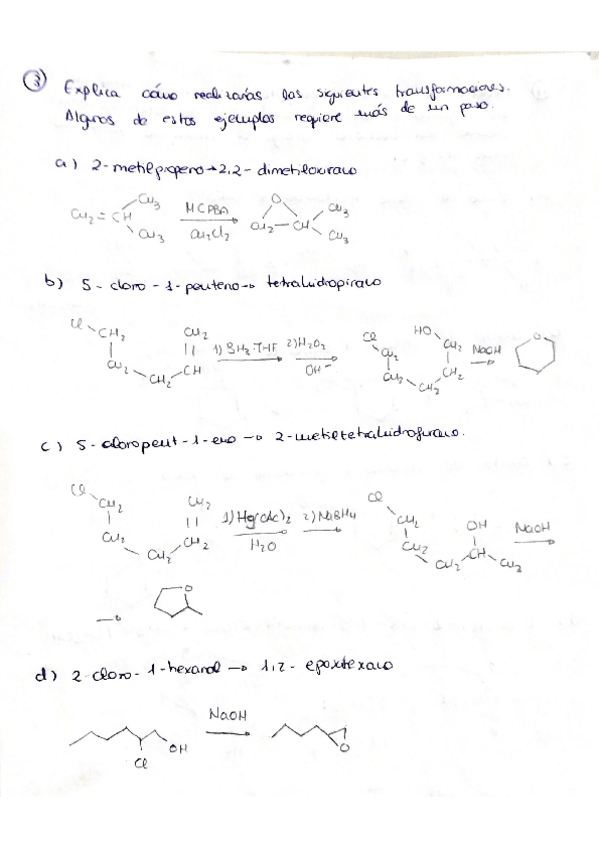 ③ Explica cómo realizarías las siguientes transformaciones.
Algunos de estos ejemplos requiere más de un paso.
a) 2-metilpropeno → 2,2-dimetiloxirano
CH2=CH CH3 CH3 MCPBA CH2Cl2 O CH2-CH CH3 CH3
b) 5-cloro-1-penteno → tetrahidropirano
Cl CH2 CH2 CH2 CH CH2 1) BH3·THF 2) H2O2 OH- Cl CH2 CH2 CH2 CH2 CH2 HO NaOH O
c) 5-cloropent-1-eno → 2-metiltetrahidrofurano.
Cl CH2 CH2 CH2 CH2 CH2 1) Hg(OAc)2 2) NaBH4 H2O Cl CH2 CH2 CH2 OH CH CH3 NaOH
→ O
d) 2-cloro-1-hexanol → 1,2-epoxihexano
Cl OH NaOH O